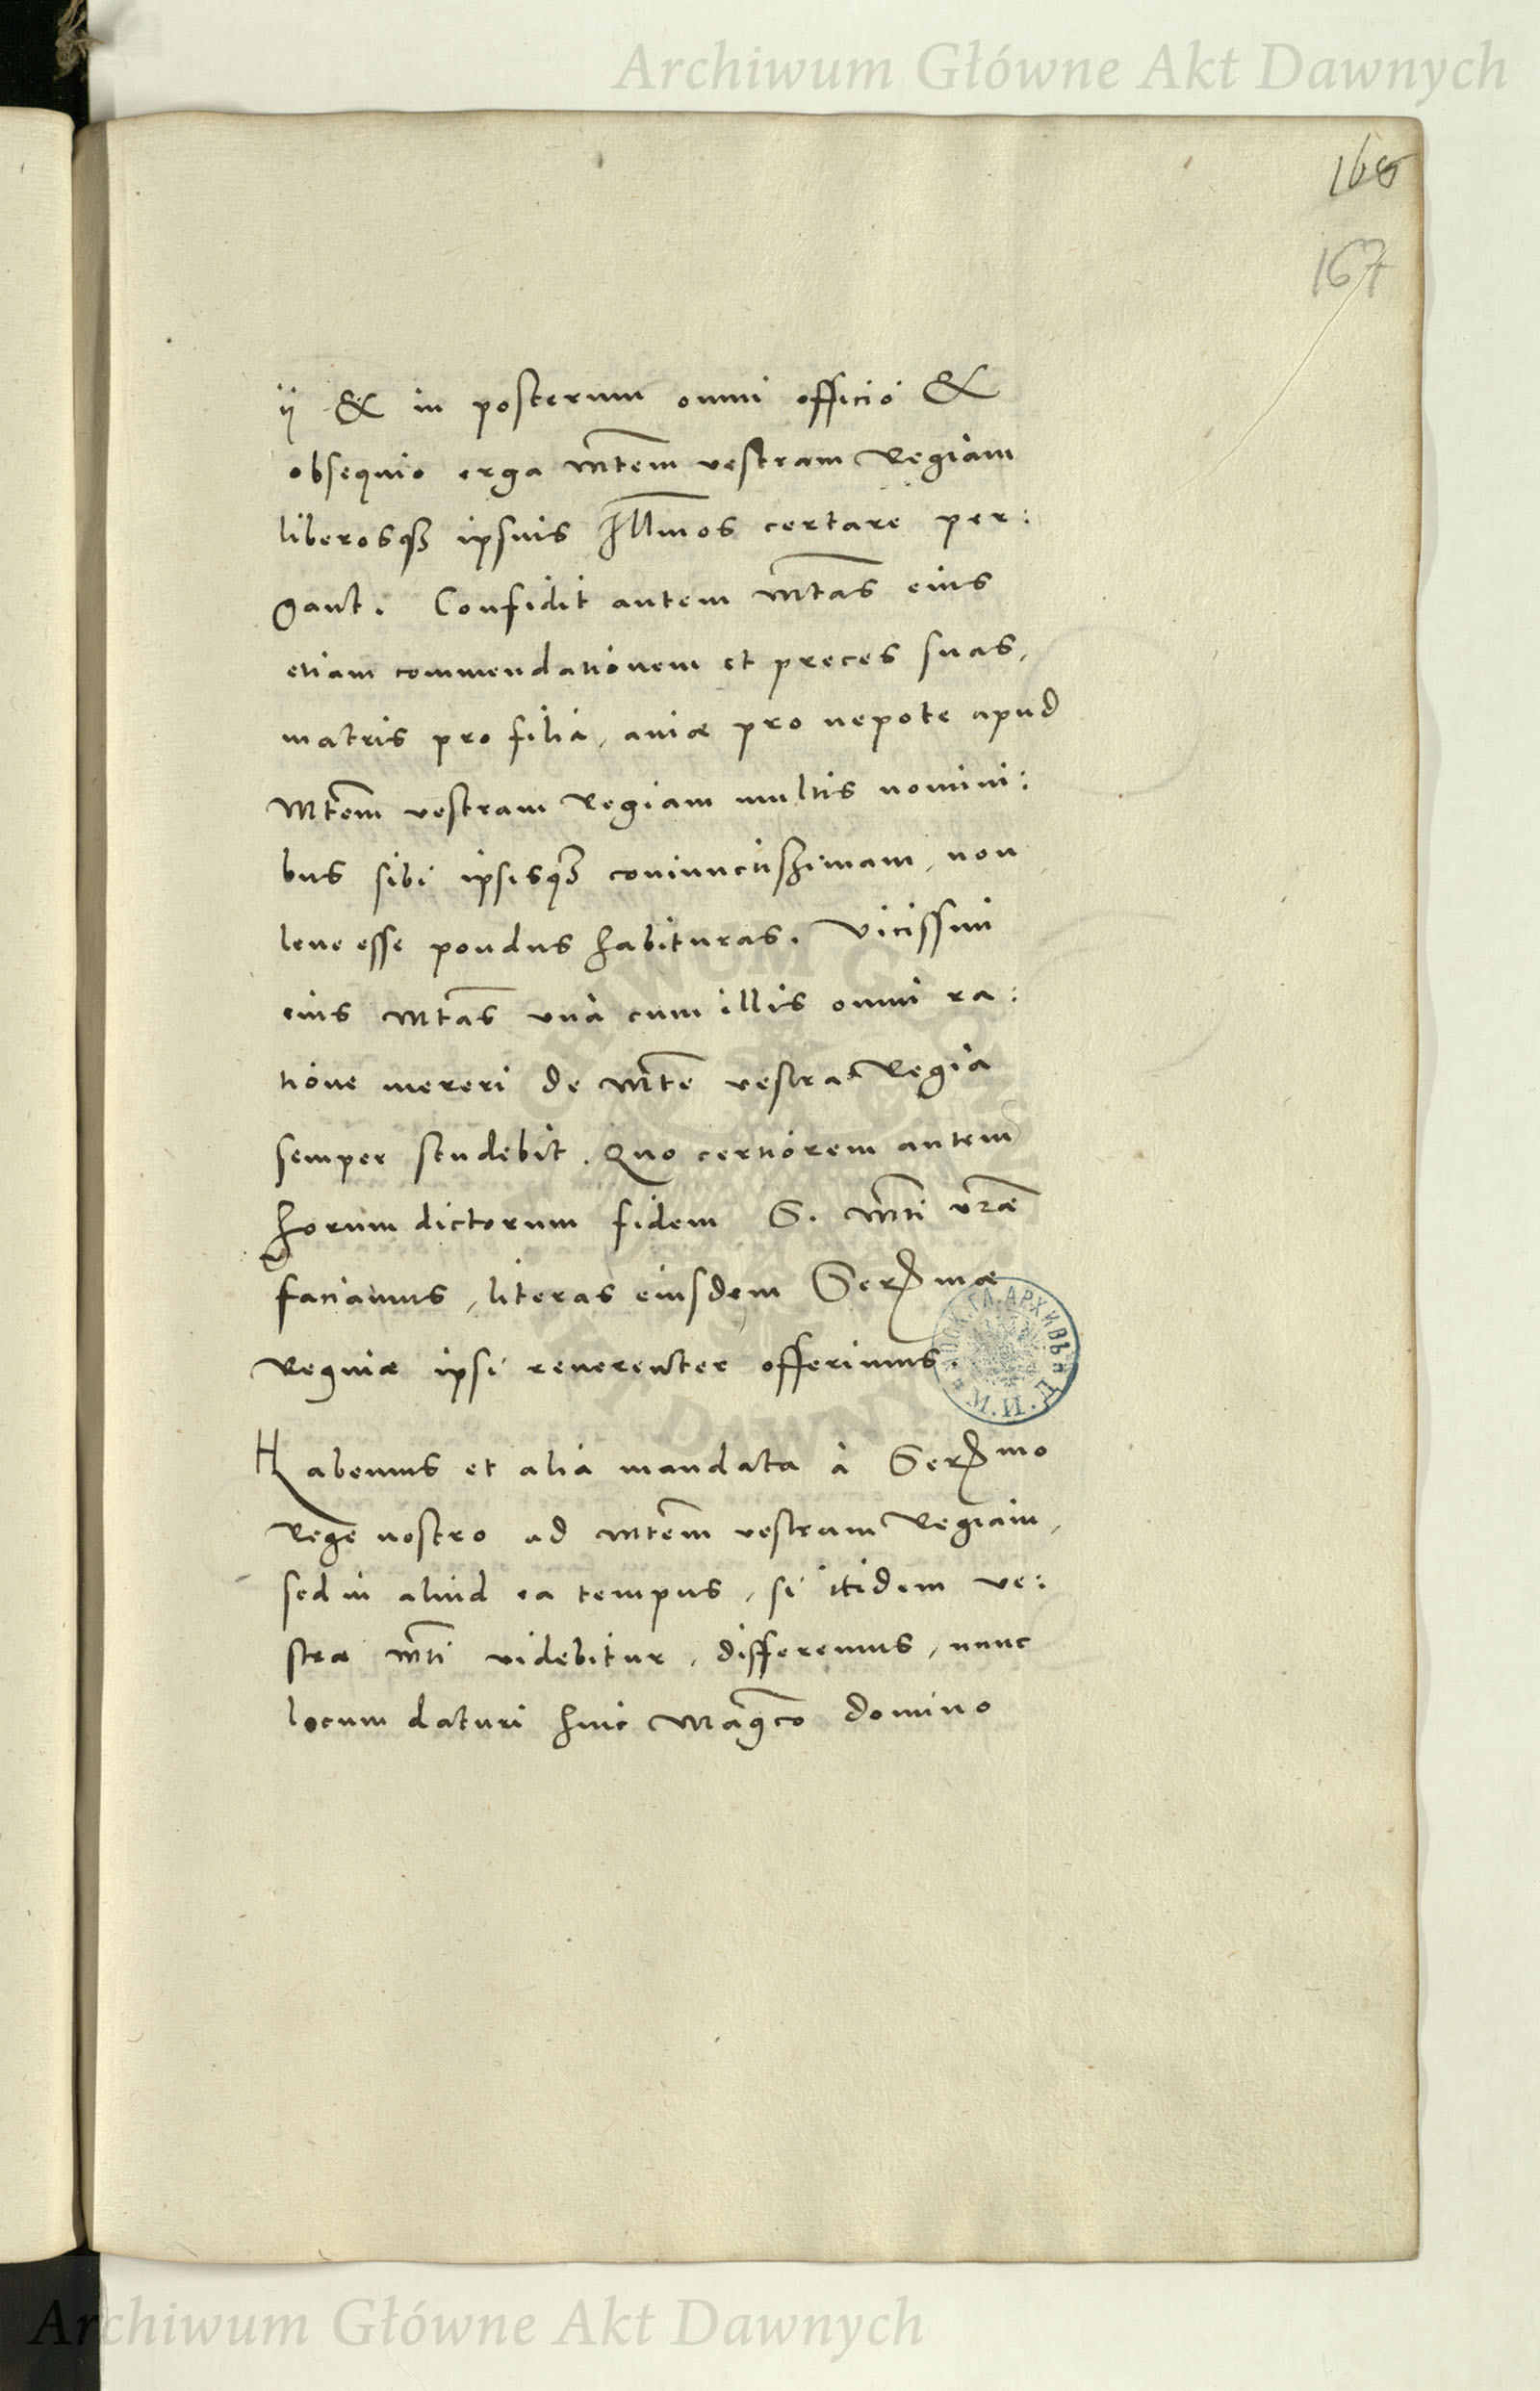 Archiwum Główne Akt Dawnych
168
167
ij & in posterum omni officio &
obsequio erga Mtem vestram Regiam
liberosq3 ipsius Illmos certare per:
gant. Confidit autem Mtas eius
etiam commendationem et preces suas,
matris pro filia, aviæ pro nepote apud
Mtem vestram Regiam multis nomini:
bus sibi ipsisq3 coniunctissimam, non
leve esse pondus habituras. Vicissim
eius Mtas unà cum illis omni ra:
tione mereri de Mte vestra Regia
semper studebit. Quo certiorem autem
horum dictorum fidem S. Mti vræ
faciamus, literas eiusdem Sermæ
Reginæ ipsi reverenter offerimus.
Habemus et alia mandata à Sermo
Rege nostro ad Mtem vestram Regiam,
sed in aliud ea tempus, si itidem ve:
stræ Mti videbitur, differemus, nunc
locum daturi huic Magco domino
Archiwum Główne Akt Dawnych